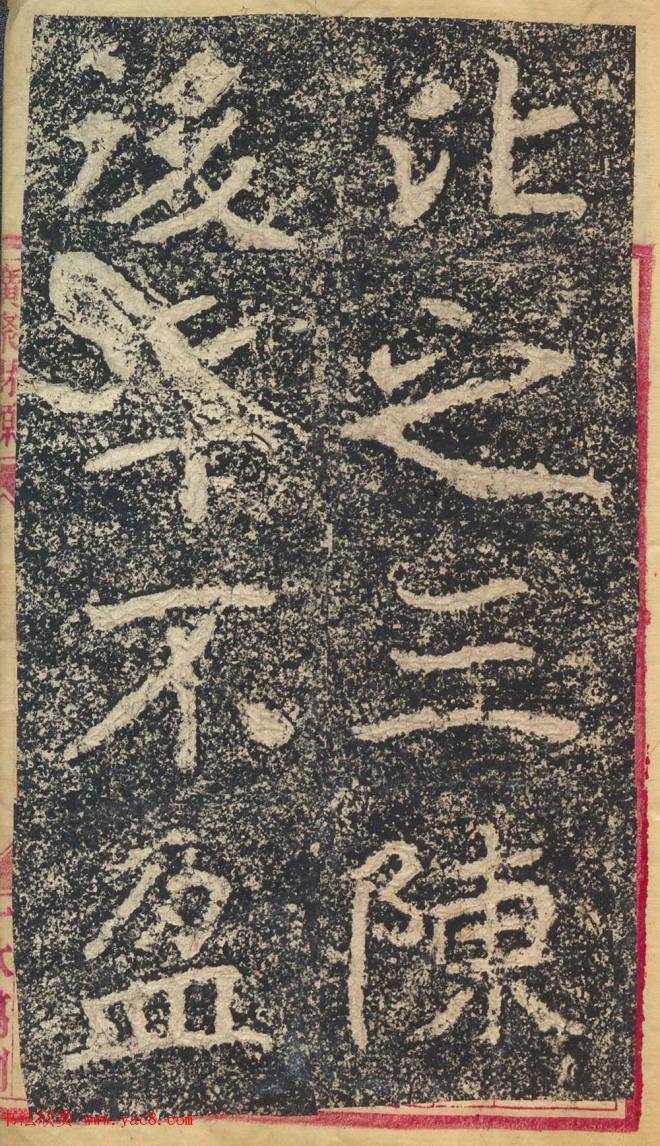 比之三陳
後年不盈
书法欣赏 www.yac8.com